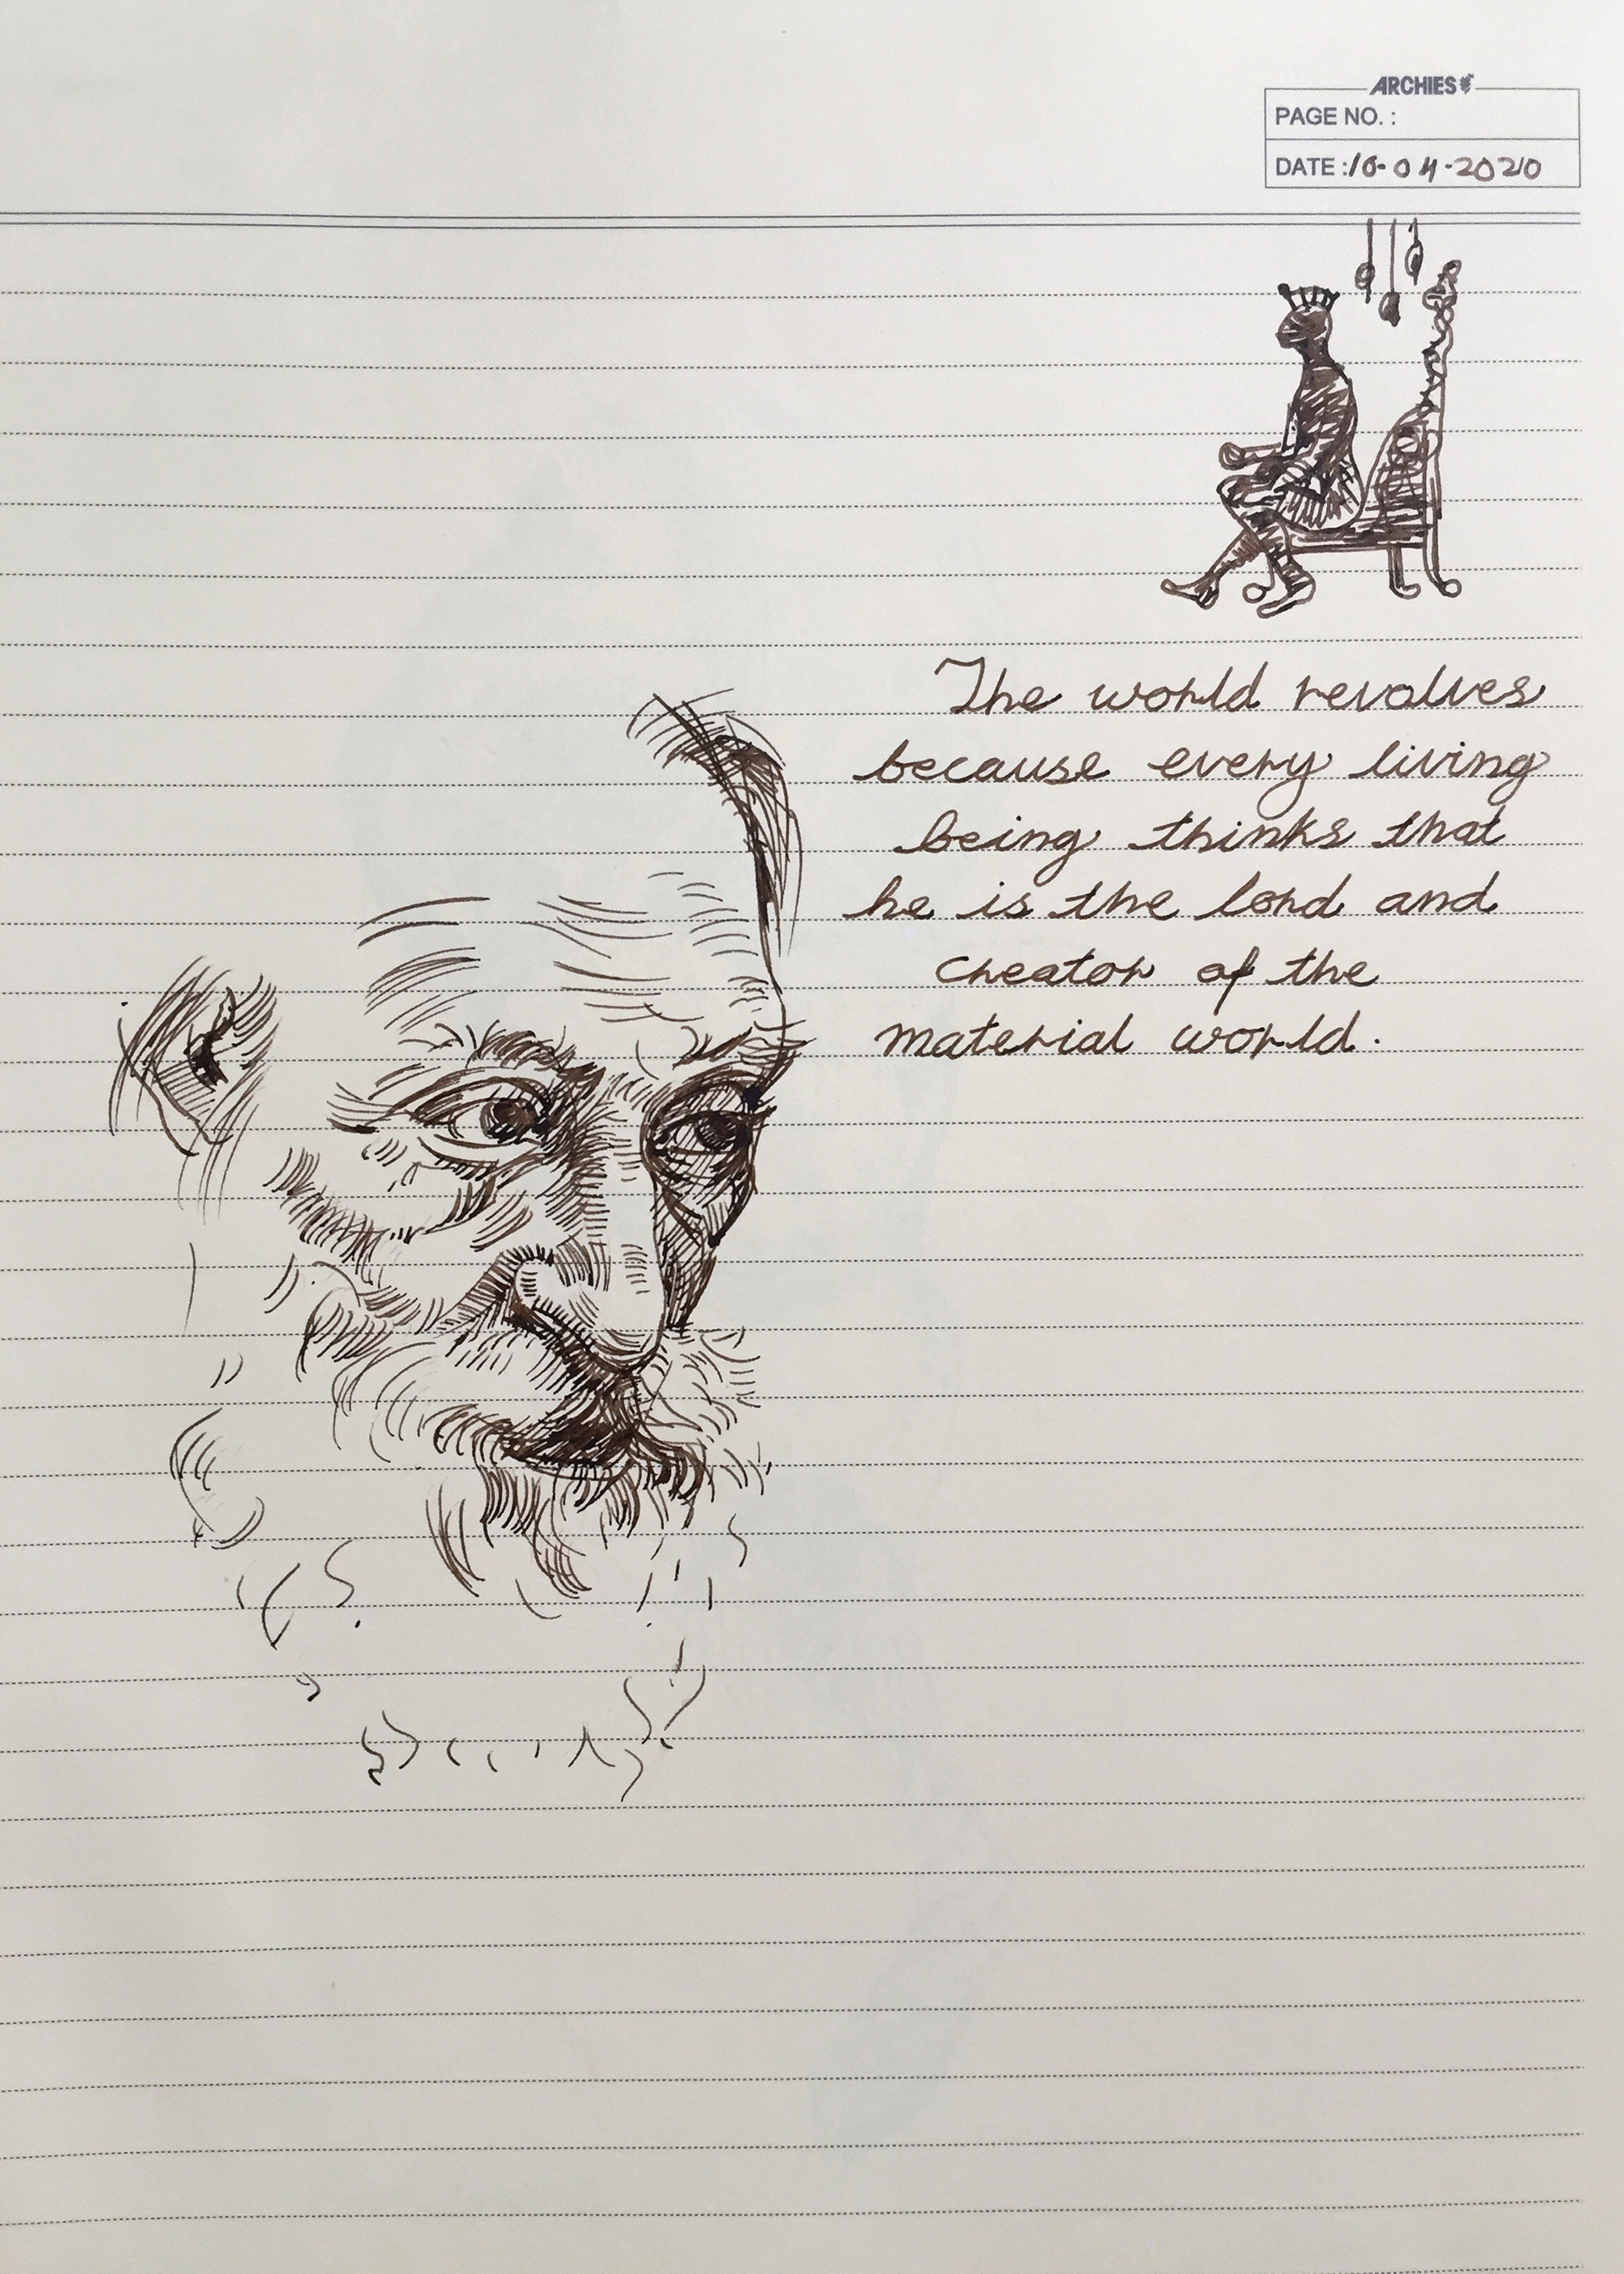 ARCHIES
PAGE NO. :
DATE : 16-04-2020
The world revolves
because every living
being thinks that
he is the lord and
creator of the
material world.